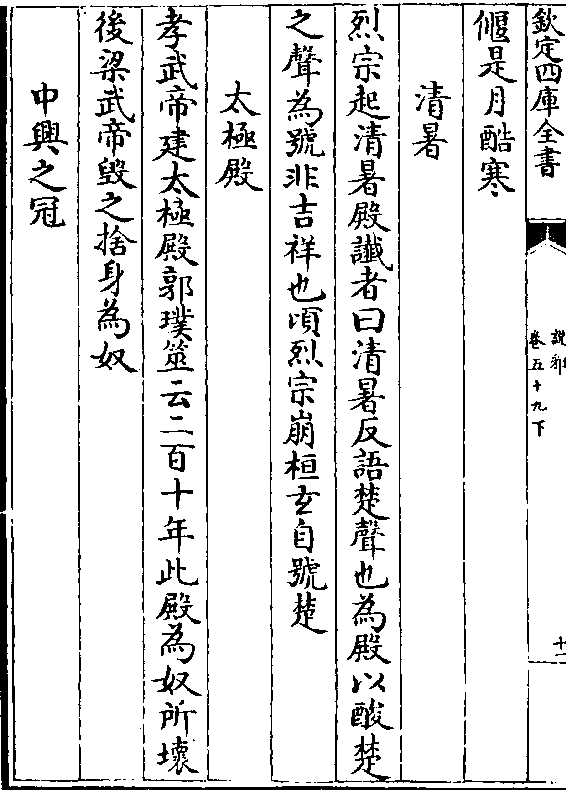 欽定四庫全書
說郛
卷五十九下
十一
偃是月酷寒
清暑
烈宗起清暑殿讖者曰清暑反語楚聲也為殿以酸楚
之聲為號非吉祥也頃烈宗崩桓玄自號楚
太極殿
孝武帝建太極殿郭璞筮云二百十年此殿為奴所壞
後梁武帝毀之捨身為奴
中興之冠